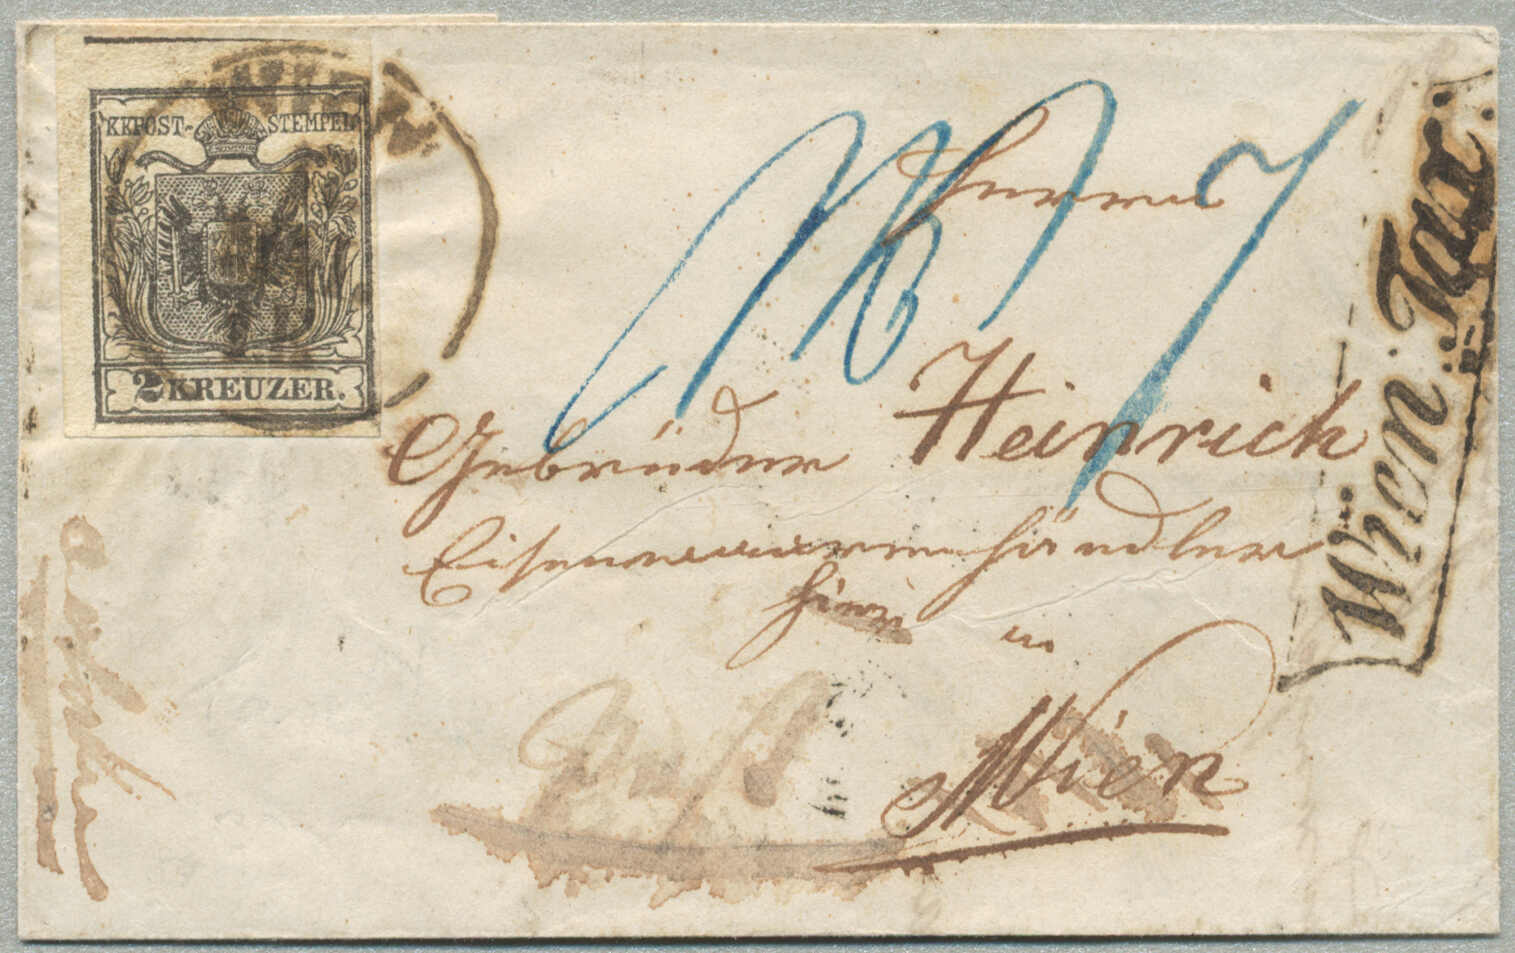 KKPOST-STEMPEL
2 KREUZER.
WIEN
Herren
Gebrüder Heinrich
Eisenwaarenhändler
hier in
Wien
Wien.Tax.